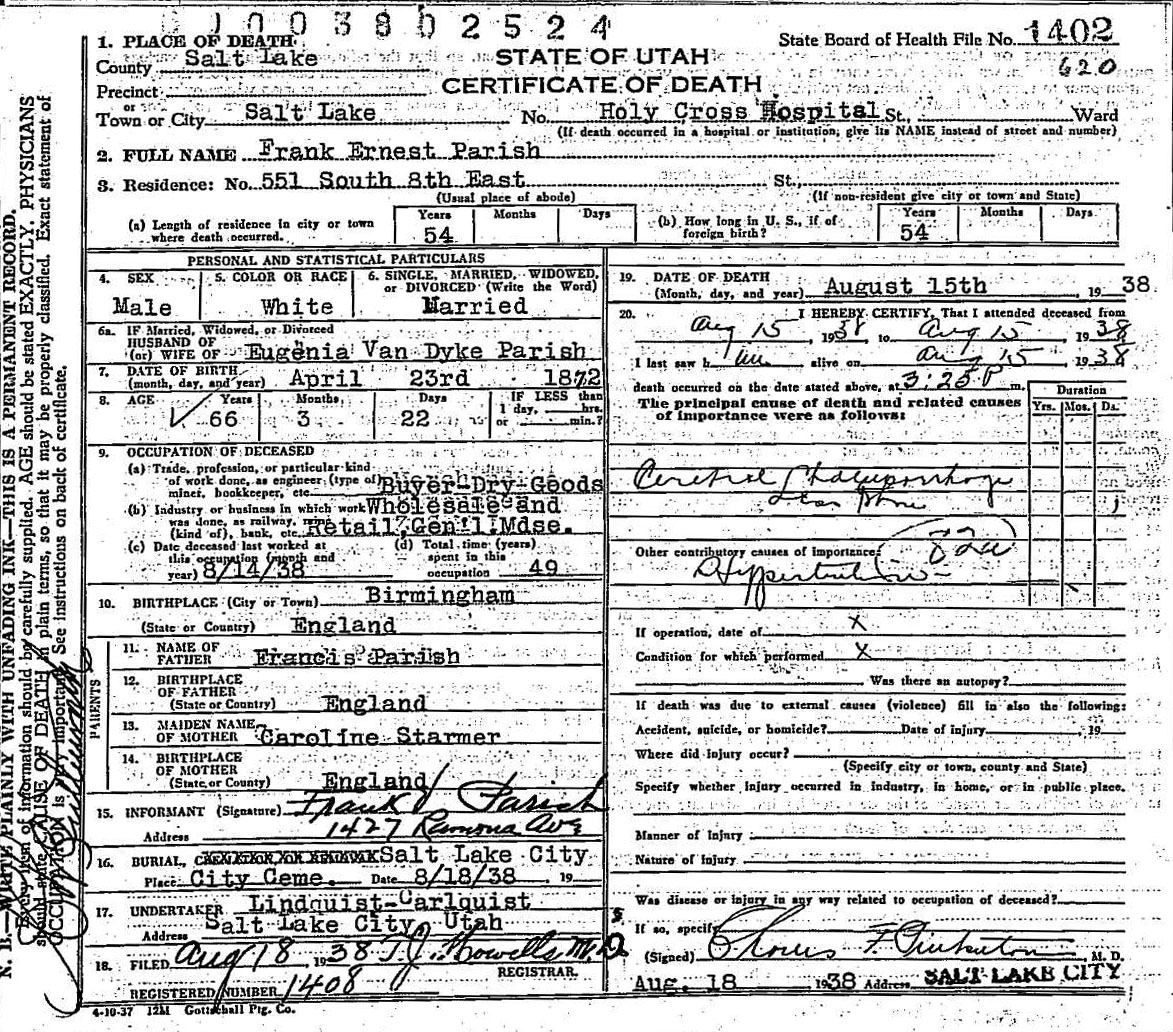 0 1 0 0 3 8 0 2 5 2 4
1. PLACE OF DEATH
County Salt Lake
STATE OF UTAH
CERTIFICATE OF DEATH
State Board of Health File No. 1402
620
Precinct
or
Town or City Salt Lake No. Holy Cross Hospital St., Ward
(If death occurred in a hospital or institution, give its NAME instead of street and number)
2. FULL NAME Frank Ernest Parish
3. Residence: No. 551 South 8th East St.,
(Usual place of abode) (If non-resident give city or town and State)
(a) Length of residence in city or town where death occurred. Years 54 Months Days
(b) How long in U. S., if of foreign birth? Years 54 Months Days
PERSONAL AND STATISTICAL PARTICULARS
4. SEX Male
5. COLOR OR RACE White
6. SINGLE, MARRIED, WIDOWED, or DIVORCED (Write the Word) Married
6a. IF Married, Widowed, or Divorced
HUSBAND OF
(or) WIFE OF Eugenia Van Dyke Parish
7. DATE OF BIRTH
(month, day, and year) April 23rd 1872
8. AGE Years 66 Months 3 Days 22 IF LESS than 1 day, hrs. or min.?
9. OCCUPATION OF DECEASED
(a) Trade, profession, or particular kind
of work done, as engineer (type of)
miner, bookkeeper, etc. Buyer-Dry-Goods
(b) Industry or business in which work Wholesale and
was done, as railway, mine
(kind of), bank, etc. Retail, Gen'l. Mdse.
(c) Date deceased last worked at
this occupation (month and
year) 8/14/38
(d) Total time (years)
spent in this
occupation 49
10. BIRTHPLACE (City or Town) Birmingham
(State or Country) England
PARENTS
11. NAME OF
FATHER Francis Parish
12. BIRTHPLACE
OF FATHER
(State or Country) England
13. MAIDEN NAME
OF MOTHER Caroline Starmer
14. BIRTHPLACE
OF MOTHER
(State or County) England
15. INFORMANT (Signature) Frank Parish
Address 1427 Ramona Ave
16. BURIAL, Salt Lake City
Place City Ceme. Date 8/18/38 , 19
17. UNDERTAKER Lindquist-Carlquist
Address Salt Lake City, Utah
18. FILED Aug 18 1938 T. J. Howells M.D.
REGISTRAR.
REGISTERED NUMBER 1408
4-10-37 12M Gottschall Ptg. Co.
19. DATE OF DEATH
(Month, day, and year) August 15th , 19 38
20. I HEREBY CERTIFY, That I attended deceased from
Aug 15 , 1938 to Aug 15 , 1938
I last saw him alive on Aug 15 , 1938
death occurred on the date stated above, at 3:25 P m.
The principal cause of death and related causes
of importance were as follows:
Duration
Yrs. Mos. Da.
Cerebral
Other contributory causes of importance:
82a
If operation, date of X
Condition for which performed X
Was there an autopsy?
If death was due to external causes (violence) fill in also the following:
Accident, suicide, or homicide? Date of injury , 19
Where did injury occur?
(Specify city or town, county and State)
Specify whether injury occurred in industry, in home, or in public place.
Manner of Injury
Nature of Injury
Was disease or injury in any way related to occupation of deceased?
If so, specify
(Signed) M. D.
Aug. 18 1938 Address SALT LAKE CITY
N. B.—WRITE PLAINLY WITH UNFADING INK—THIS IS A PERMANENT RECORD.
Every item of information should be carefully supplied. AGE should be stated EXACTLY. PHYSICIANS
should state CAUSE OF DEATH in plain terms, so that it may be properly classified. Exact statement of
OCCUPATION is very important. See instructions on back of certificate.